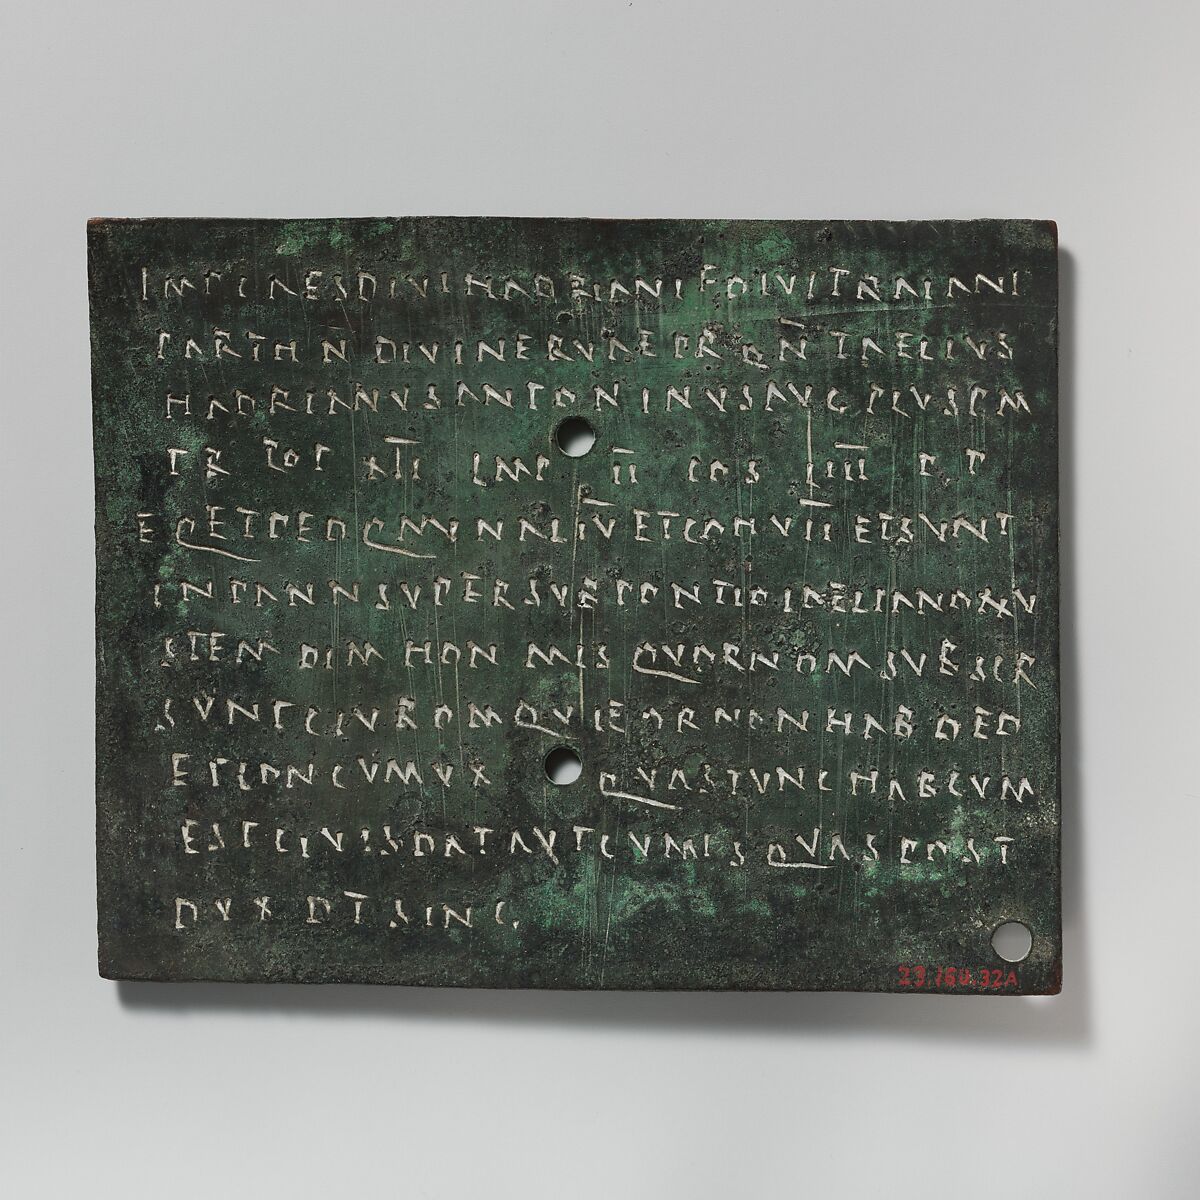 IMPCAESDIVIHADRIANIFDIVITRAIANI
PARTHNDIVINERVAEPRONTAELIVS
HADRIANVSANTONINVSAVGPIVSPM
TRPOTXIIIMPIICOSIIIIPP
EQETPEDQMINALIVETCOHVIIETSVNT
INPANNSVPERSVBPONTIOLAELIANOXXV
STEMDIMHONMISQVORNOMSVBSCR
SVNTCIVROMQVIEORNONHABDED
ETCONCVMVXQVASTVNCHABCVM
ESTCIVISDATAVTCVMISQVASPOST
DVXDTSING
23.160.32A